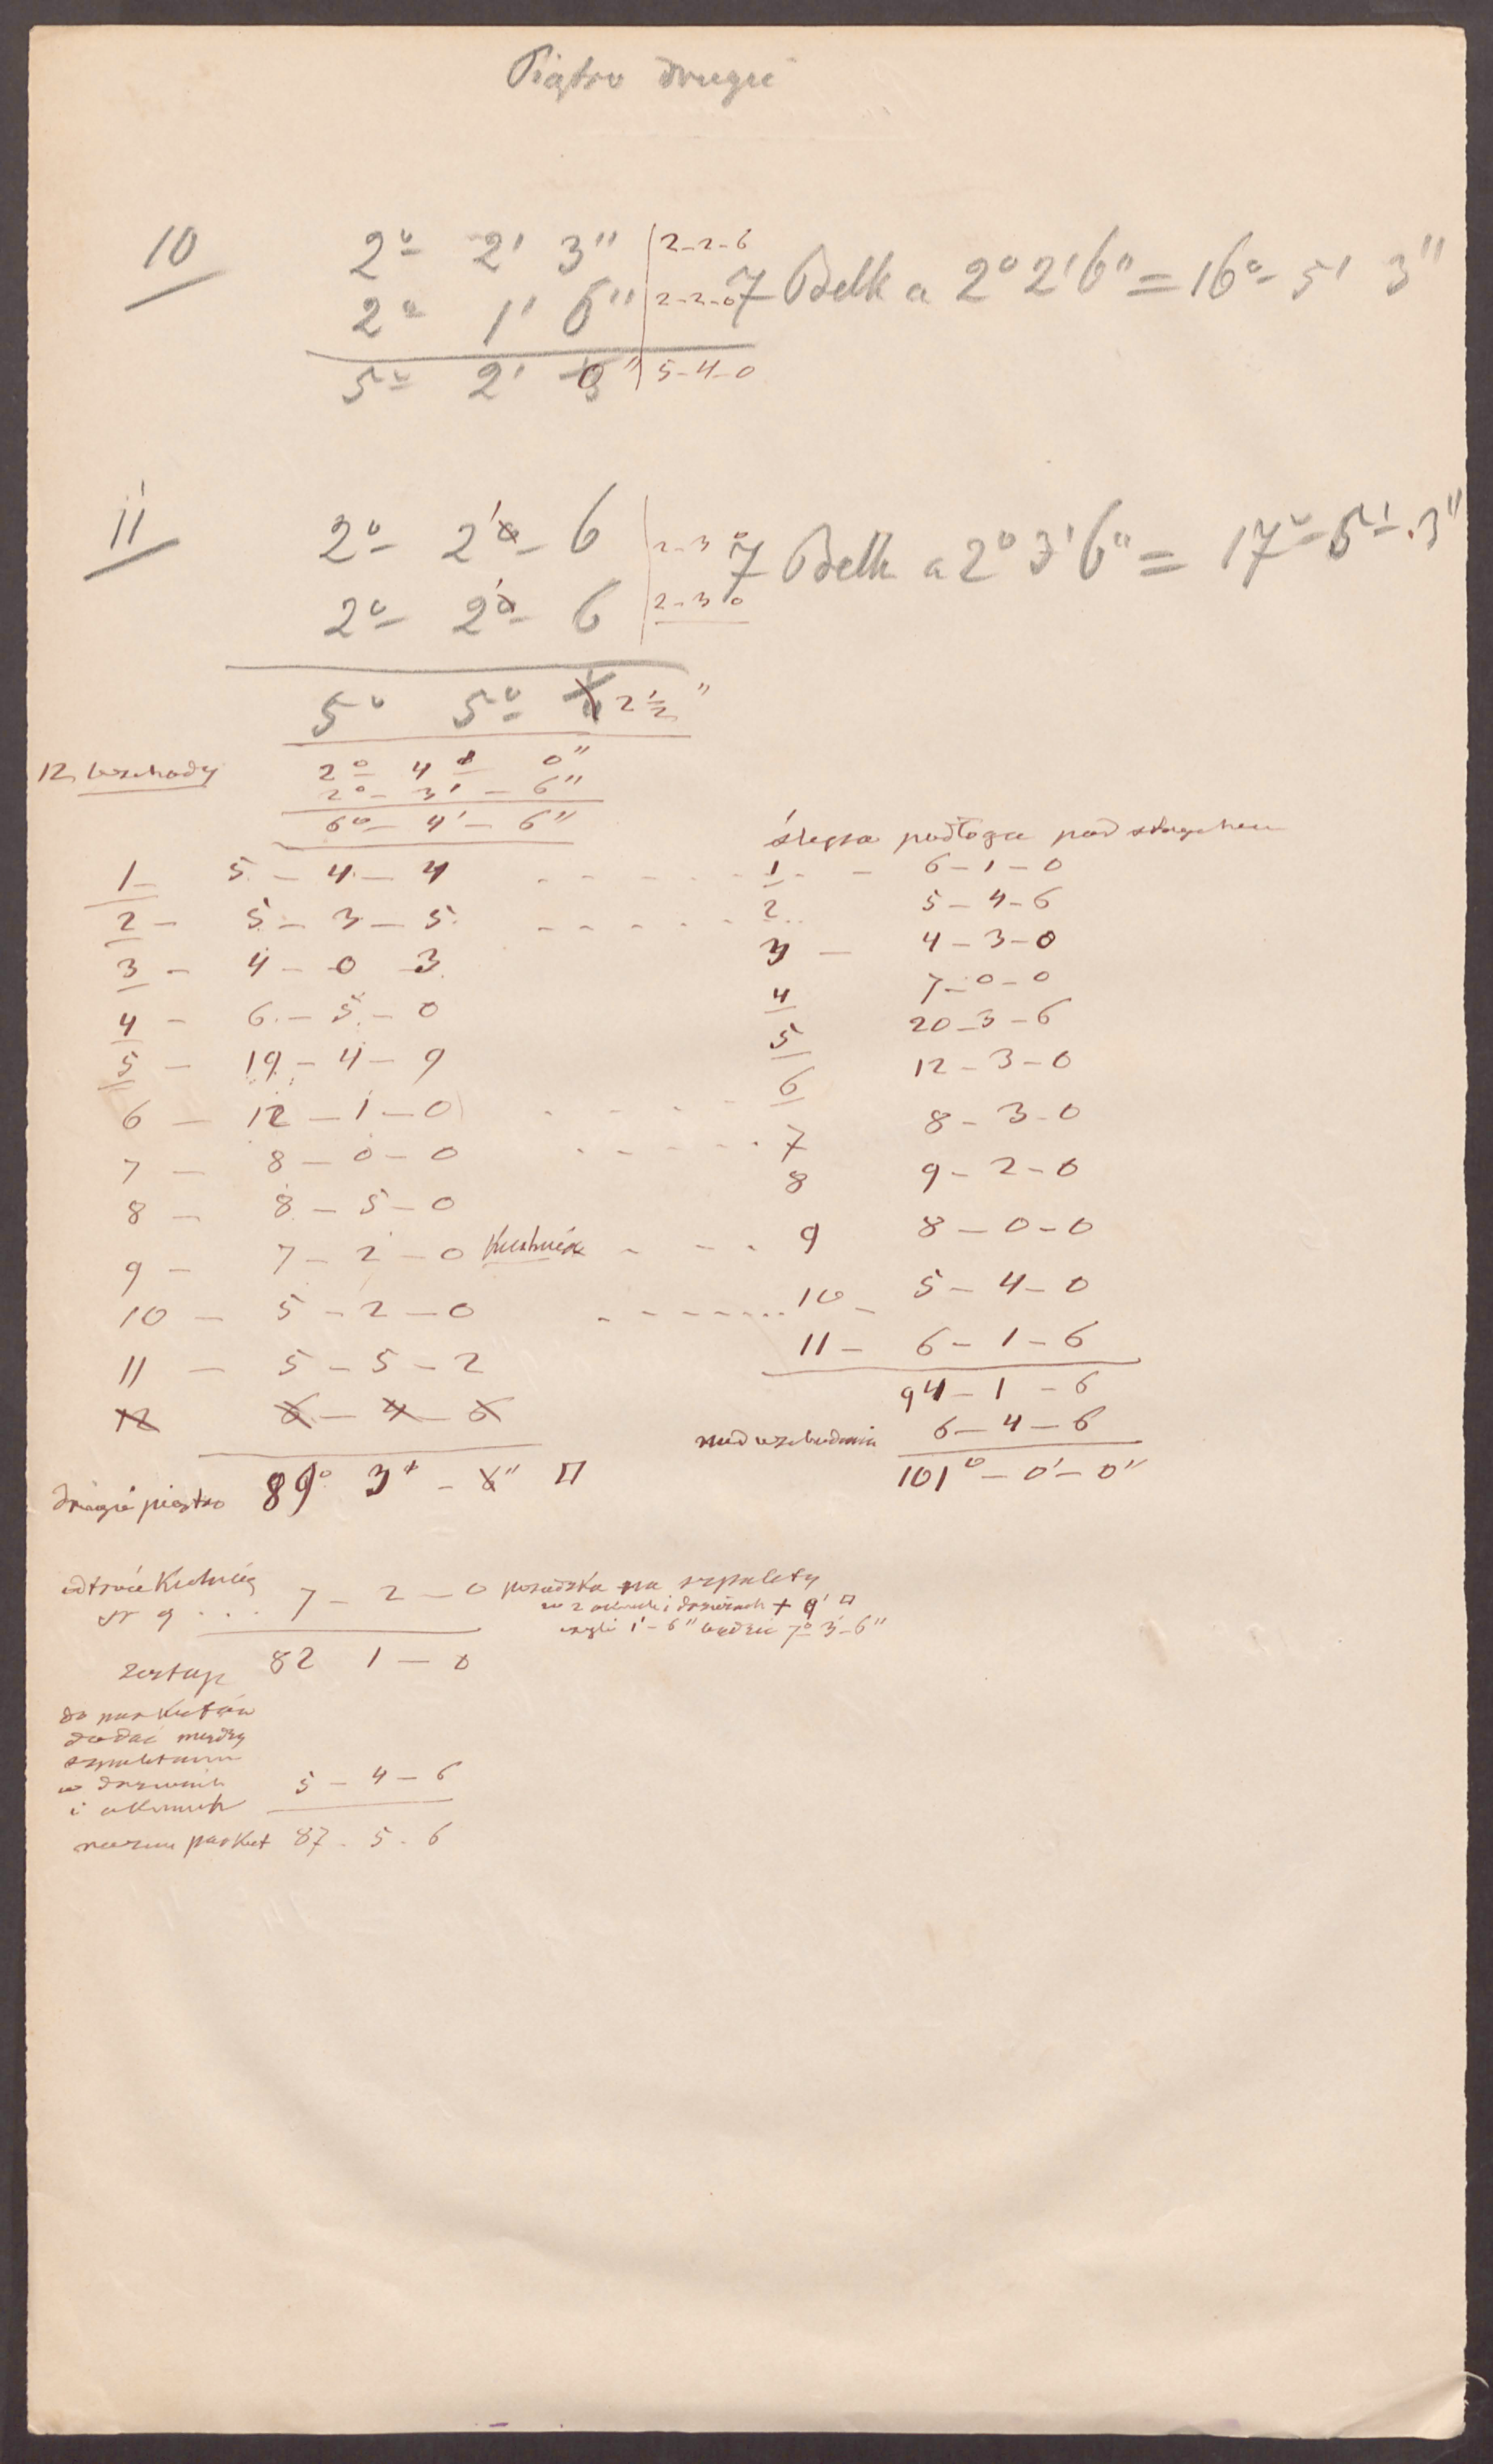 Piątro drugie
10 2° 2' 3" 2-2-6
7 Belk a 2° 2' 6" = 16° 5' 3"
2° 1' 6" 2-2-0
5° 2' 0" 5-4-0
11 2° 2' 6 2-3-0
7 Belk a 2° 3' 6" = 17° 5' 3"
2° 2' 6 2-3-0
5° 5° 2½"
12 wschody 2° 4' 0"
2° - 3' - 6"
6° - 4' - 6"
ślepa podłoga pod strychem
1 - 5 - 4 - 4 - - - - - 1 - 6 - 1 - 0
2 - 5 - 3 - 5 - - - - - 2 5 - 4 - 6
3 - 4 - 0 3 3 - 4 - 3 - 0
4 - 6 - 5 - 0 4 7 - 0 - 0
5 - 19 - 4 - 9 5 20 - 3 - 6
6 - 12 - 1 - 0 - - - - 6 12 - 3 - 0
7 - 8 - 0 - 0 - - - - - 7 8 - 3 - 0
8 - 8 - 5 - 0 8 9 - 2 - 0
9 - 7 - 2 - 0 Kuchnia - - - 9 8 - 0 - 0
10 - 5 - 2 - 0 - - - - - - 10 - 5 - 4 - 0
11 - 5 - 5 - 2 11 - 6 - 1 - 6
12 6 - 4 - 6 94 - 1 - 6
nad wschodami 6 - 4 - 6
drugie piątro 89° 3' - 6" □ 101° - 0' - 0"
odtrącić Kuchnię
nr 9 . . . 7 - 2 - 0 posadzka na szpalety
w 2 oknach i drzwiach + 9' □
czyli 1' - 6" będzie 7° 3' - 6"
82 1 - 0
do parkietów
dodać między
szpaletami
w drzwiach
i oknach 5 - 4 - 6
razem parkiet 87 - 5 - 6